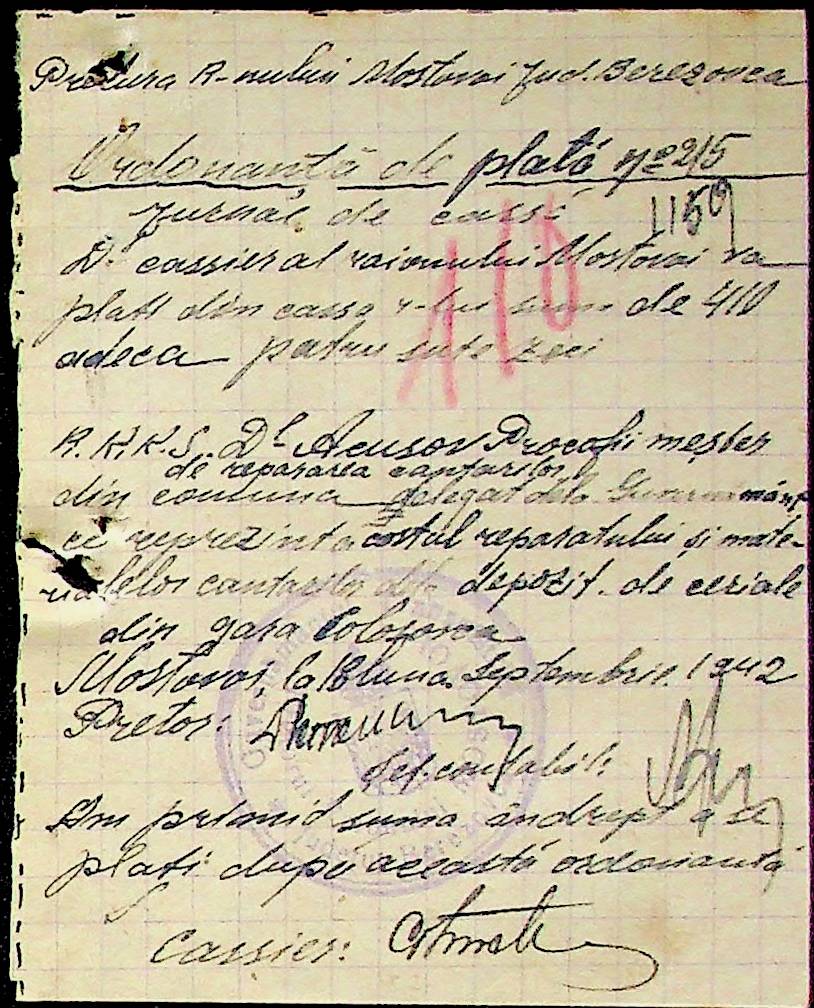 Pretura R-nului Mostovoi Jud. Berezovca
Ordonanță de plată No 215
Jurnal de cassă 1159
110
Dl cassier al raionului Mostovoi va
plati din cassa r-lui suma de 410
adeca patru sute zeci
R.K.K.S. Dl Acusov Procofii meșter
de repararea cantarilor
din comuna delegat dela Guvernământ
ce reprezinta costul reparatului și mate-
rialelor cantarilor dela depozit de ceriale
din gara Colosovca
Mostovoi, la luna Septembrie 1942
Pretor:
Șef. contabil:
Am primit suma andrept a se
plati dupe această ordonanță
Cassier: